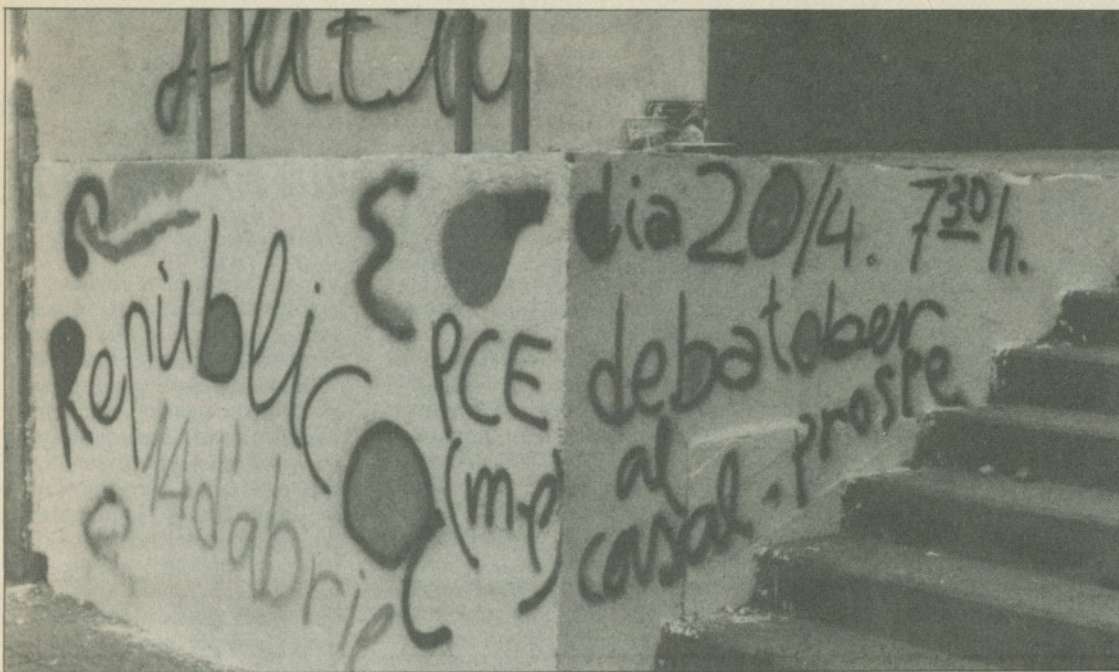 República
14 d'abril
PCE
(mp)
dia 20/4. 7 30 h.
debat ober
al
casal . prospe